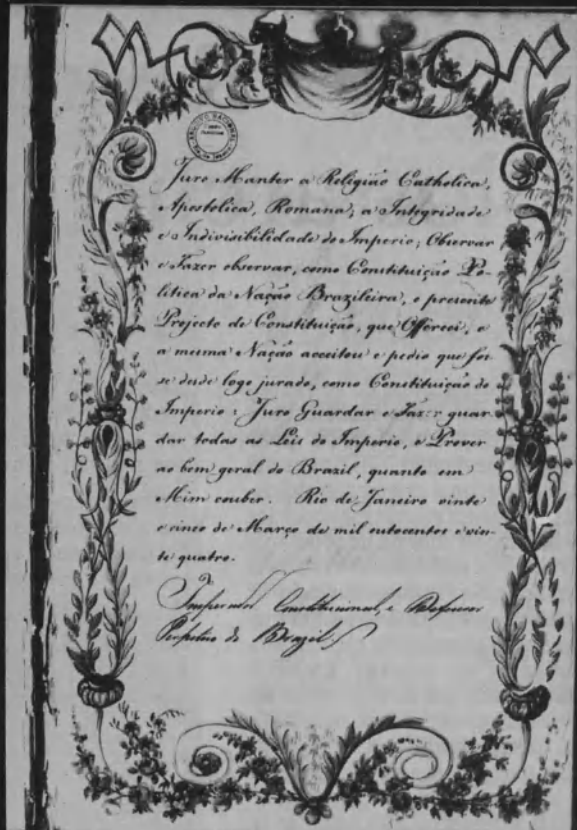 ARQUIVO NACIONAL
Juro Manter a Religião Catholica,
Apostolica, Romana; a Integridade
e Indivisibilidade do Imperio; Observar
e Fazer observar, como Constituição Po-
litica da Nação Brazileira, o presente
Projecto de Constituição, que Offereci, e
a mesma Nação acceitou e pedio que fos-
se desde logo jurado, como Constituição do
Imperio: Juro Guardar e Fazer guar
dar todas as Leis do Imperio, e Prover
ao bem geral do Brazil, quanto em
Mim couber. Rio de Janeiro vinte
e cinco de Março de mil outocentos e vin-
te quatro.
Imperador Constitucional, e Defensor
Perpetuo do Brazil